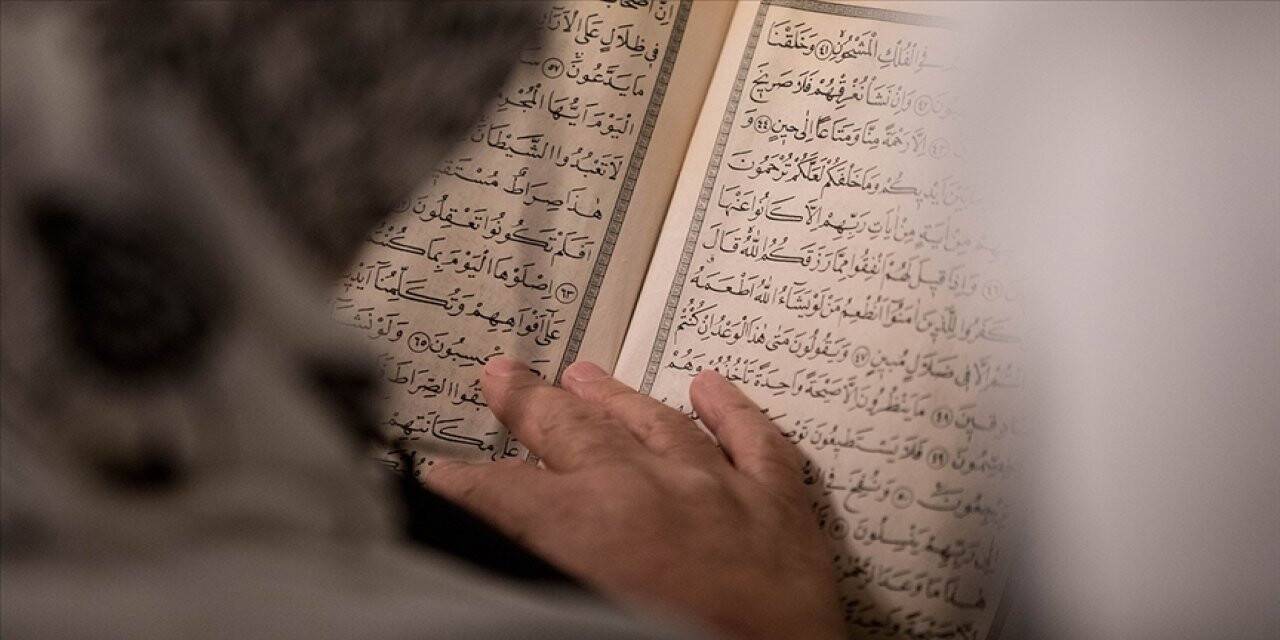 فِي الْفُلْكِ الْمَشْحُونِ ﴿٤١﴾ وَخَلَقْنَا
﴿٤٢﴾ وَاِنْ نَشَأْ نُغْرِقْهُمْ فَلَا صَرِيخَ
﴿٤٣﴾ اِلَّا رَحْمَةً مِنَّا وَمَتَاعًا اِلٰى حِينٍ ﴿٤٤﴾ وَ
اَيْدِيكُمْ وَمَا خَلْفَكُمْ لَعَلَّكُمْ تُرْحَمُونَ
مِنْ اٰيَةٍ مِنْ اٰيَاتِ رَبِّهِمْ اِلَّا كَانُوا عَنْهَا
﴿٤٦﴾ وَاِذَا قِيلَ لَهُمْ اَنْفِقُوا مِمَّا رَزَقَكُمُ اللّٰهُ قَالَ
كَفَرُوا لِلَّذِينَ اٰمَنُوا اَنُطْعِمُ مَنْ لَوْ يَشَاءُ اللّٰهُ اَطْعَمَهُ
اِلَّا فِي ضَلَالٍ مُبِينٍ ﴿٤٧﴾ وَيَقُولُونَ مَتٰى هٰذَا الْوَعْدُ اِنْ كُنْتُمْ
﴿٤٨﴾ مَا يَنْظُرُونَ اِلَّا صَيْحَةً وَاحِدَةً تَأْخُذُهُمْ وَهُمْ
﴿٤٩﴾ فَلَا يَسْتَطِيعُونَ
يَرْجِعُونَ ﴿٥٠﴾ وَنُفِخَ فِي
اِلٰى رَبِّهِمْ يَنْسِلُونَ ﴿٥١﴾
هٰذَا مَا وَعَدَ الرَّحْمٰنُ
صَيْحَةً وَاحِدَةً
اِنَّ
فِي ظِلَالٍ عَلَى
مَا يَدَّعُونَ ﴿٥٧﴾
الْيَوْمَ اَيُّهَا
لَا تَعْبُدُوا الشَّيْطَانَ
هٰذَا صِرَاطٌ
اَفَلَمْ تَكُونُوا تَعْقِلُونَ
﴿٦٣﴾ اِصْلَوْهَا الْيَوْمَ بِمَا كُنْتُمْ
عَلٰى اَفْوَاهِهِمْ وَتُكَلِّمُنَا
﴿٦٥﴾ وَلَوْ نَشَاءُ
الصِّرَاطَ
عَلٰى مَكَانَتِهِمْ